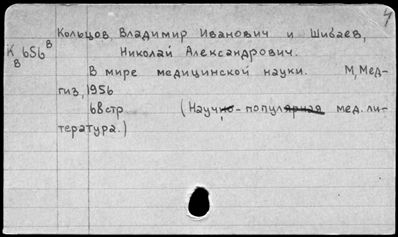 4
Кольцов Владимир Иванович и Шибаев,
К 656 в Николай Александрович.
в
В мире медицинской науки. М, Мед-
гиз, 1956
68 стр (Научно-популярная мед. ли-
тература.)